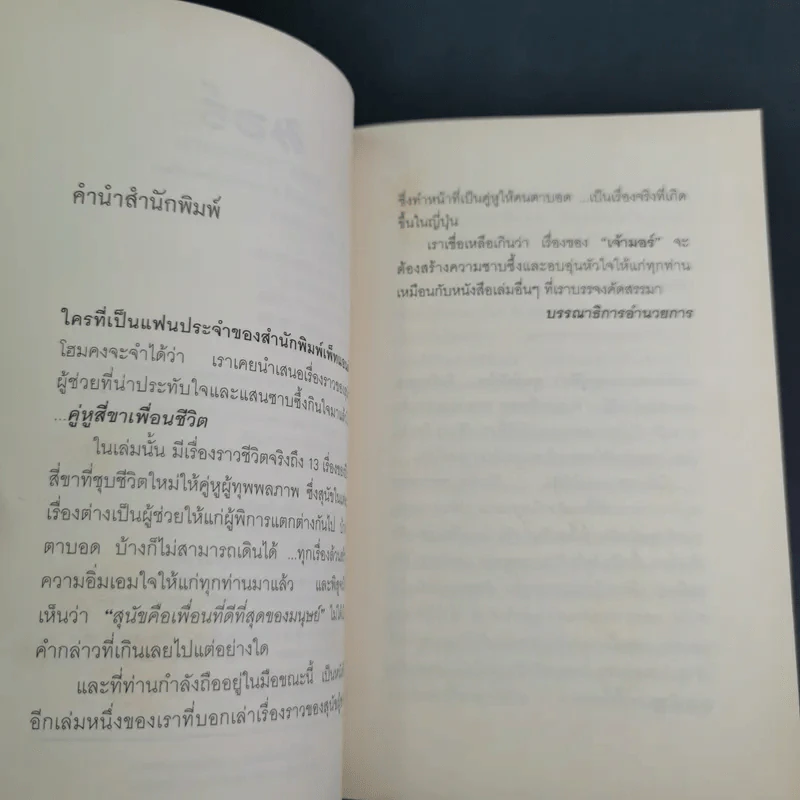 คำนำสำนักพิมพ์
ใครที่เป็นแฟนประจำของสำนักพิมพ์เพ็ทแอนด์
โฮมคงจะจำได้ว่า เราเคยนำเสนอเรื่องราวของ
ผู้ช่วยที่น่าประทับใจและแสนซาบซึ้งกินใจมาแล้ว
...คู่หูสี่ขาเพื่อนชีวิต
ในเล่มนั้น มีเรื่องราวชีวิตจริงถึง 13 เรื่องของ
สี่ขาที่ชุบชีวิตใหม่ให้คู่หูผู้ทุพพลภาพ ซึ่งสุนัขใน
เรื่องต่างเป็นผู้ช่วยให้แก่ผู้พิการแตกต่างกันไป
ตาบอด บ้างก็ไม่สามารถเดินได้ ...ทุกเรื่องล้วน
ความอิ่มเอมใจให้แก่ทุกท่านมาแล้ว และ
เห็นว่า "สุนัขคือเพื่อนที่ดีที่สุดของมนุษย์" ไม่
คำกล่าวที่เกินเลยไปแต่อย่างใด
และที่ท่านกำลังถืออยู่ในมือขณะนี้ เป็น
อีกเล่มหนึ่งของเราที่บอกเล่าเรื่องราวของสุนัข
ซึ่งทำหน้าที่เป็นคู่หูให้คนตาบอด ...เป็นเรื่องจริงที่เกิด
ขึ้นในญี่ปุ่น
เราเชื่อเหลือเกินว่า เรื่องของ "เจ้ามอร์" จะ
ต้องสร้างความซาบซึ้งและอบอุ่นหัวใจให้แก่ทุกท่าน
เหมือนกับหนังสือเล่มอื่นๆ ที่เราบรรจงคัดสรรมา
บรรณาธิการอำนวยการ